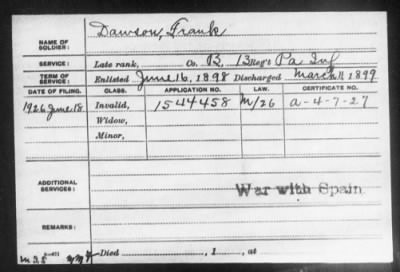 NAME OF SOLDIER: Dawson, Frank
SERVICE: Late rank, Co. B, 13 Reg't Pa Inf
TERM OF SERVICE: Enlisted June 16, 1898 Discharged March 11 1899
DATE OF FILING. CLASS. APPLICATION NO. LAW. CERTIFICATE NO.
1926 June 18 Invalid, 1544458 M/26 a-4-7-27
Widow,
Minor,
ADDITIONAL SERVICES: War with Spain
REMARKS:
Died , 1 , at